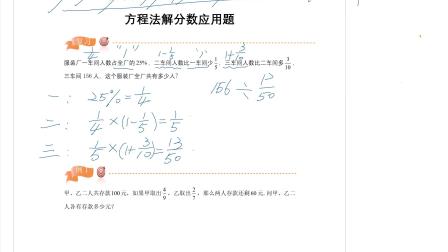 方程法解分数应用题
1/4 "1" 1-1/5 "1" 1+3/10
服装厂一车间人数占全厂的25%，二车间人数比一车间少1/5，三车间人数比二车间多3/10，
三车间156人，这个服装厂全厂共有多少人？
一： 25%=1/4 156÷13/50
二： 1/4×(1-1/5)=1/5
三： 1/5×(1+3/10)=13/50
甲、乙二人共存款100元，如果甲取出4/9，乙取出2/7，那么两人存款还剩60元. 问甲、乙二
人各有存款多少元？